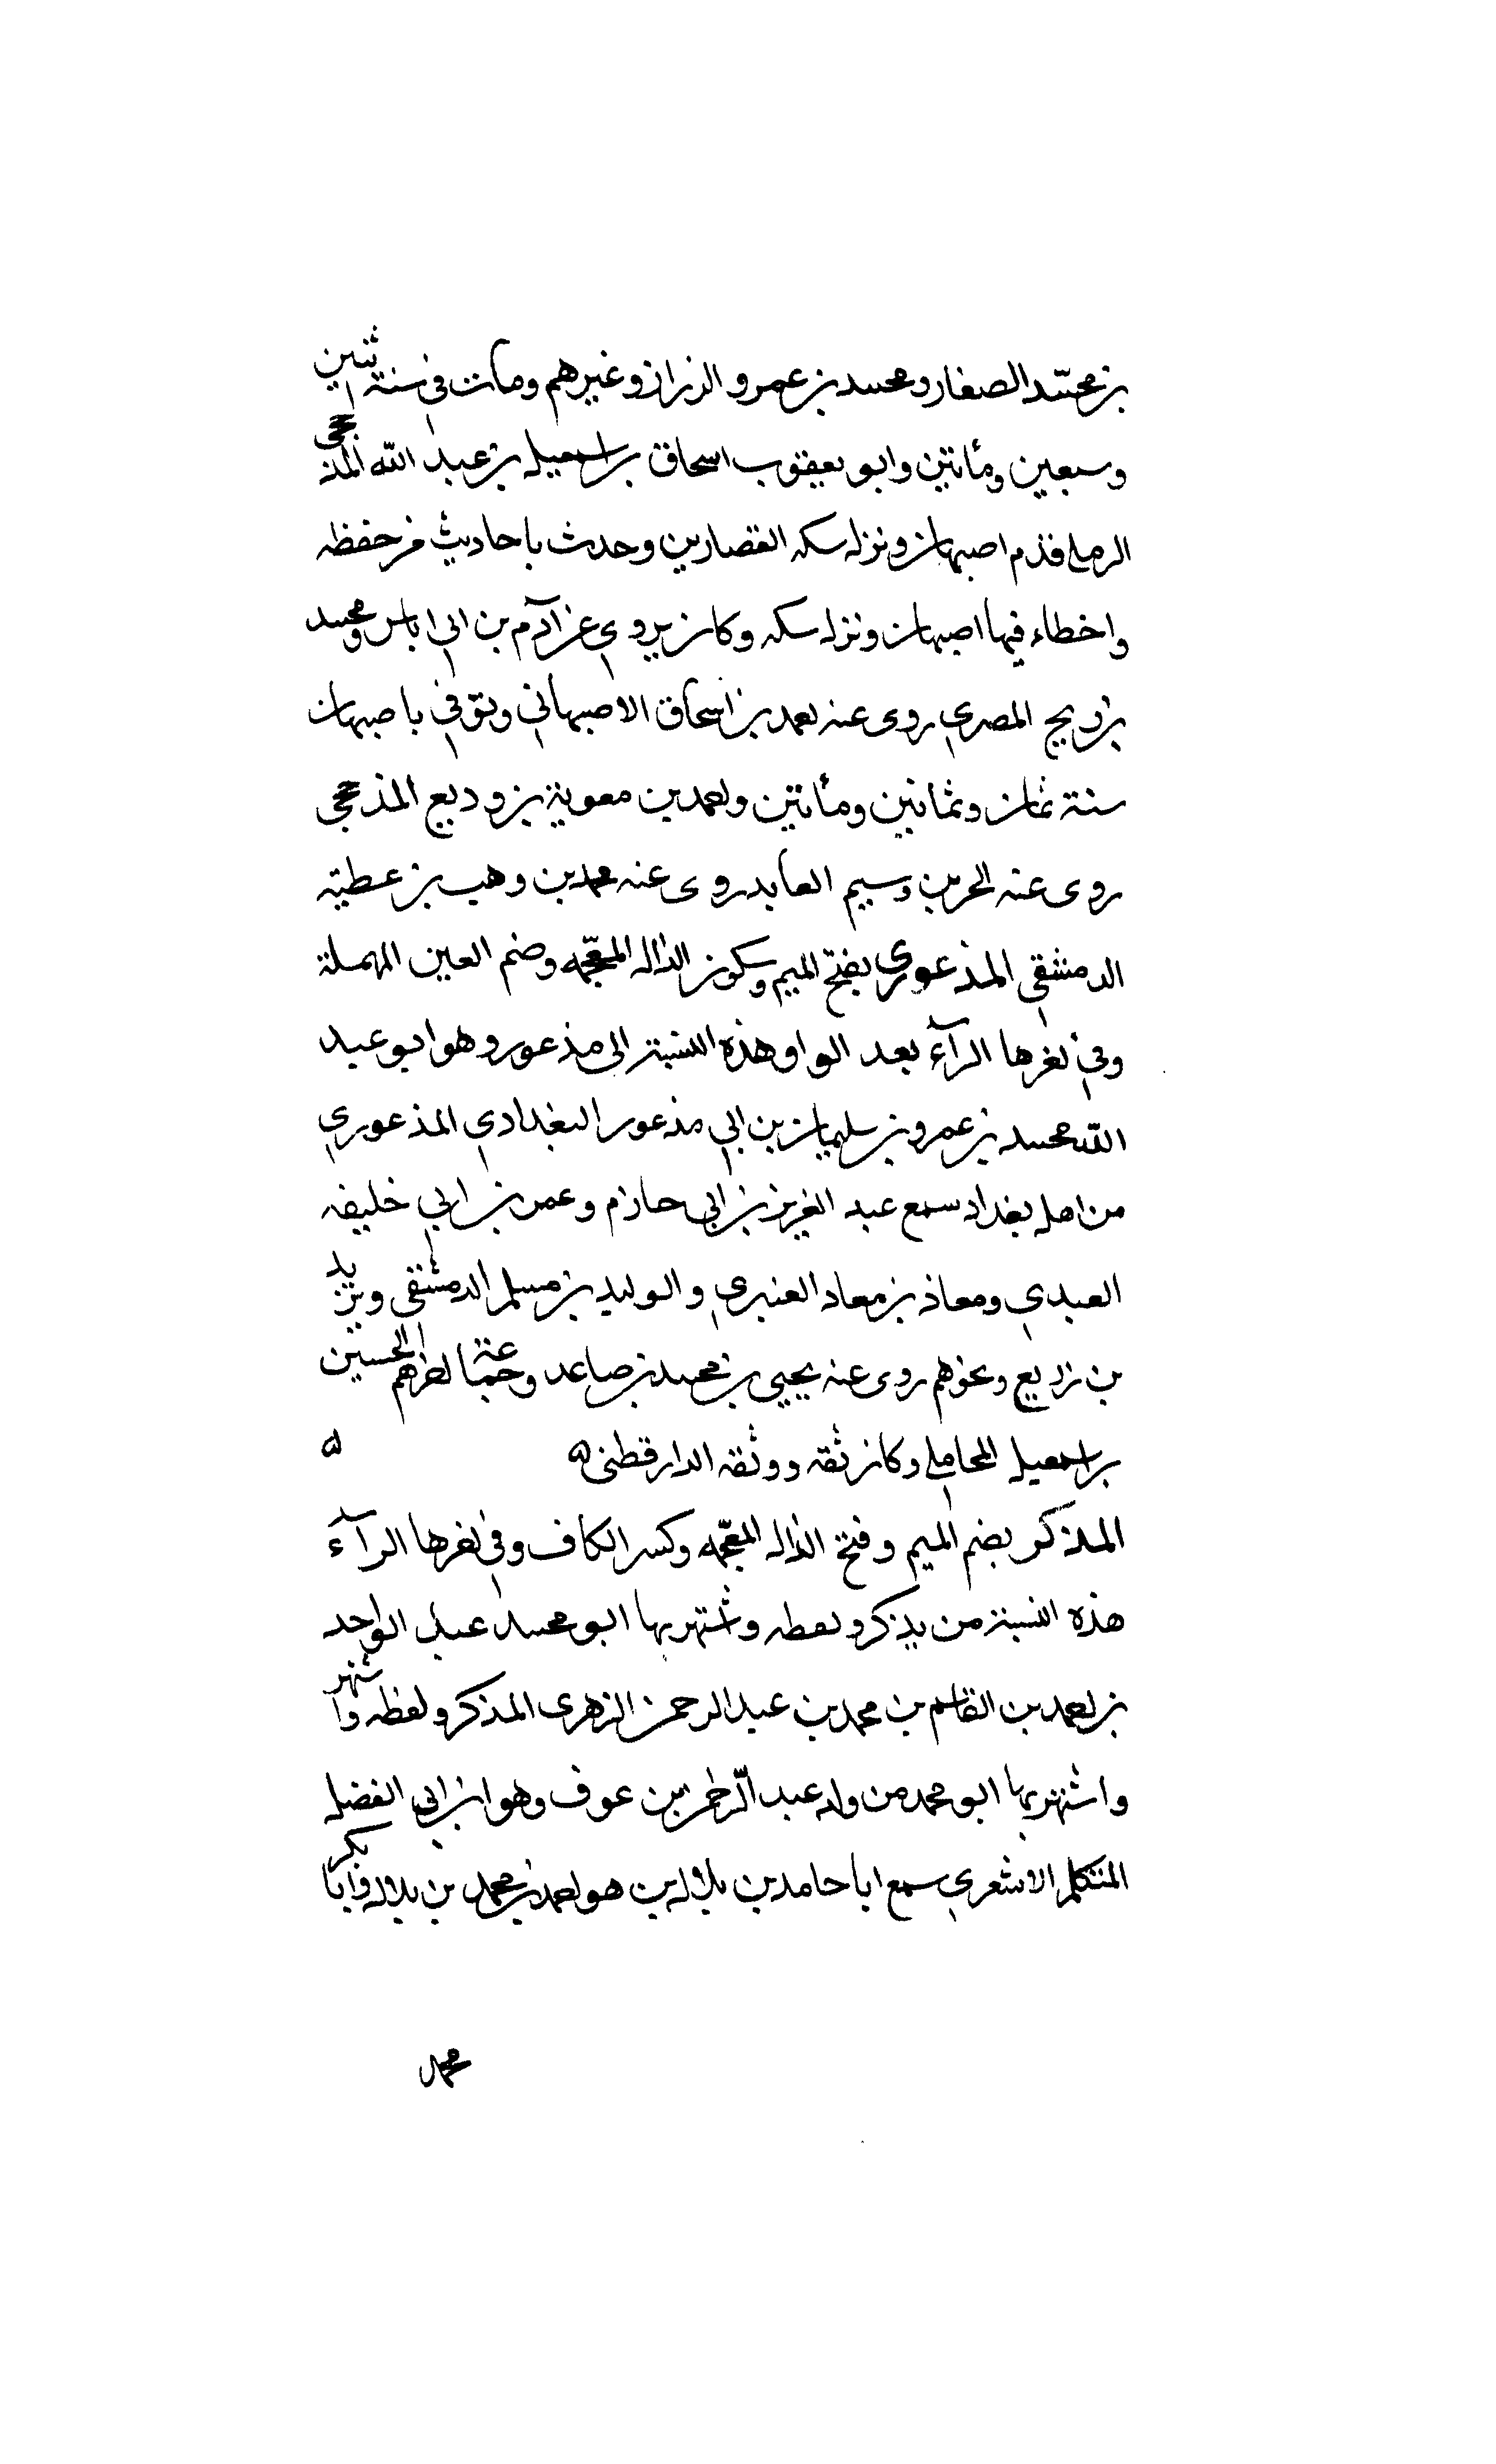 بن محمد الصفار ومحمد بن عمرو الرزاز وغيرهم ومات في سنة اثنين
وسبعين ومأتين وابو يعقوب اسحاق بن اسمعيل بن عبد الله المذحجى
الرملي قدم اصبهان ونزل سكه القصارين وحدث باحاديث من حفظه
واخطاء فيها اصبهان ونزل سكه وكان يروى عن آدم بن ابي اياس ومحمد
بن رمح المصري روى عنه احمد بن اسحاق الاصبهاني وتوفي باصبهان
سنة ثمان وثمانين ومأتين واحمد بن معوية بن وديع المذحجى
روى عنه الحر بن وسيم العابد روى عنه محمد بن وهب بن عطية
الدمشقي المذعورى بفتح الميم وسكون الذال المعجمه وضم العين المهملة
وفي اخرها الرآء بعد الواو هذه النسبة الى مذعور وهو ابو عبد
الله محمد بن عمرو بن سليمان بن ابي مذعور البغدادي المذعوري
من اهل بغداد سمع عبد العزيز بن ابى حازم وعمر بن ابي خليفه
العبدي ومعاذ بن معاد العنبري والوليد بن مسلم الدمشقى ويزيد
بن زريع ونحوهم روى عنه يحيى بن محمد بن صاعد وجماعة اخرهم الحسين
بن اسمعيل المحاملي وكان ثقه ووثقه الدارقطنى ه ه
المذكر بضم الميم وفتح الذال المعجمه وكسر الكاف وفي اخرها الرآء
هذه النسبة من يذكر ويعظ واشتهر بها ابو محمد عبد الواحد
بن احمد بن القاسم بن محمد بن عبد الرحمن الزهرى المذكر ولفظه واشتهر
واشتهر بها ابو محمد من ولد عبد الرحمن بن عوف وهو ابن ابي الفضل
المتكلم الاشعري سمع ابا حامد بن بلال بن هو احمد بن محمد بن بلال وابا بكر
محمد